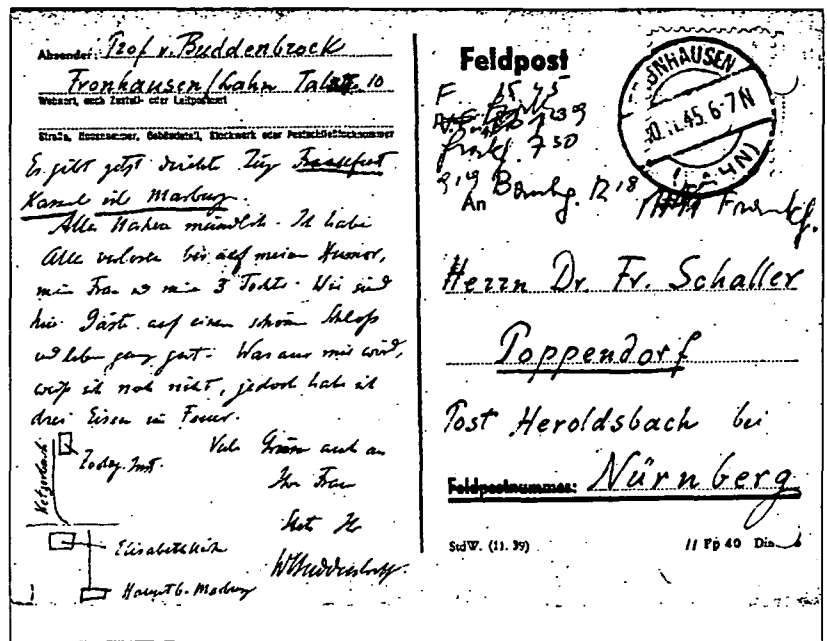 Absender: Prof v. Buddenbrock
Fronhausen/Lahn Talstr. 10
Wohnort, auch Zustell- oder Leitpostamt
Straße, Hausnummer, Gebäudeteil, Stockwerk oder Postschließfachnummer
Es gibt jetzt direkte Züge Frankfurt
Kassel via Marburg.
Alles Nähere mündlich. Ich habe
Alles verloren bis auf meinen Humor,
meine Frau u meine 3 Töchter. Wir sind
hier Gäste auf einem schönen Schloß
und leben ganz gut. Was aus mir wird,
weiß ich noch nicht, jedoch habe ich
drei Eisen im Feuer.
Viele Grüsse auch an
Ihre Frau
Stets Ihr
WBuddenbrock
Ketzerbach
Zoolog. Inst.
Elisabethkirche
Hauptb. Marburg
Feldpost
F 15 45
1239
Frankf. 730
919 Bamberg. 12 18
Frankf.
An
Herrn Dr. Fr. Schaller
Poppendorf
Post Heroldsbach bei
Feldpostnummer: Nürnberg
StdW. (11. 39)
11 Fp 40 Din
45. 6-7N